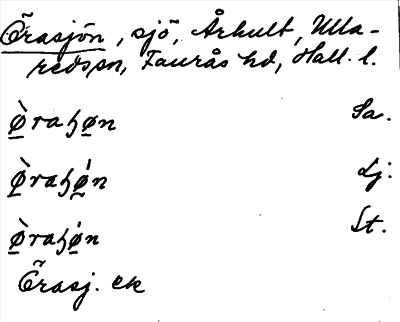 Õrasjön, sjö, Århult, Ulla-
redssn, Faurås hd, Hall. l.
ø̲̀raꜧø̲n Sa.
ø̲̀raꜧǿ̲n Lj.
ø̲̀raꜧǿ̲n St.
Õrasj. ek